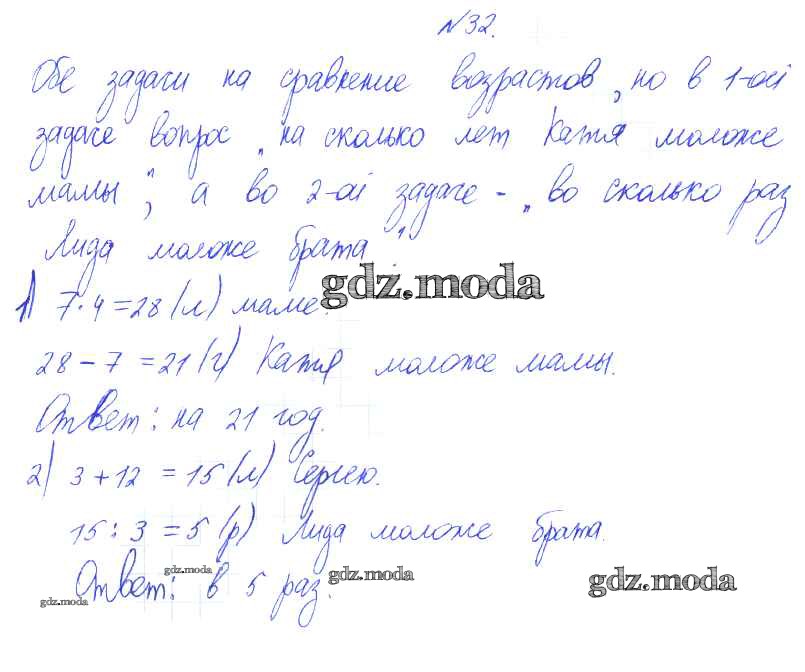 №32.
Обе задачи на сравнение возрастов, но в 1-ой
задаче вопрос „на сколько лет Катя моложе
мамы", а во 2-ой задаче - „во сколько раз
Лида моложе брата"
gdz.moda
1) 7·4=28(л) маме.
28-7=21(г) Катя моложе мамы.
Ответ: на 21 год.
2) 3+12=15(л) Сергею.
15:3=5(р) Лида моложе брата.
Ответ: в 5 раз.
gdz.moda
gdz.moda
gdz.moda
gdz.moda